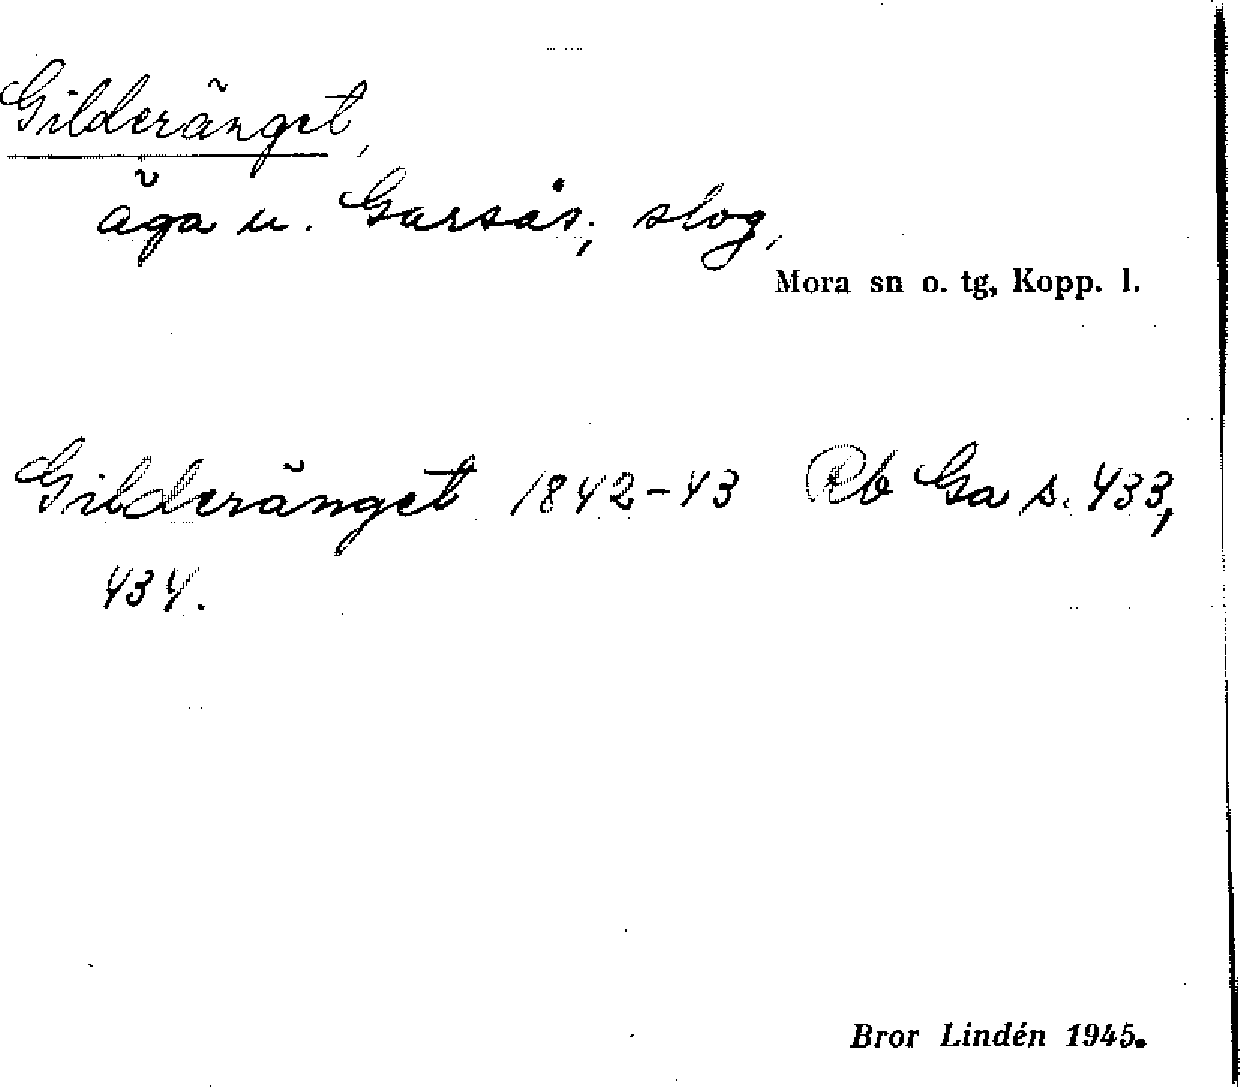 Gilderänget,
äga u. Garsås; slog,
Mora sn o. tg, Kopp. l.
Gilderänget 1842-43 Rb Ga s. 433,
434.
Bror Lindén 1945.